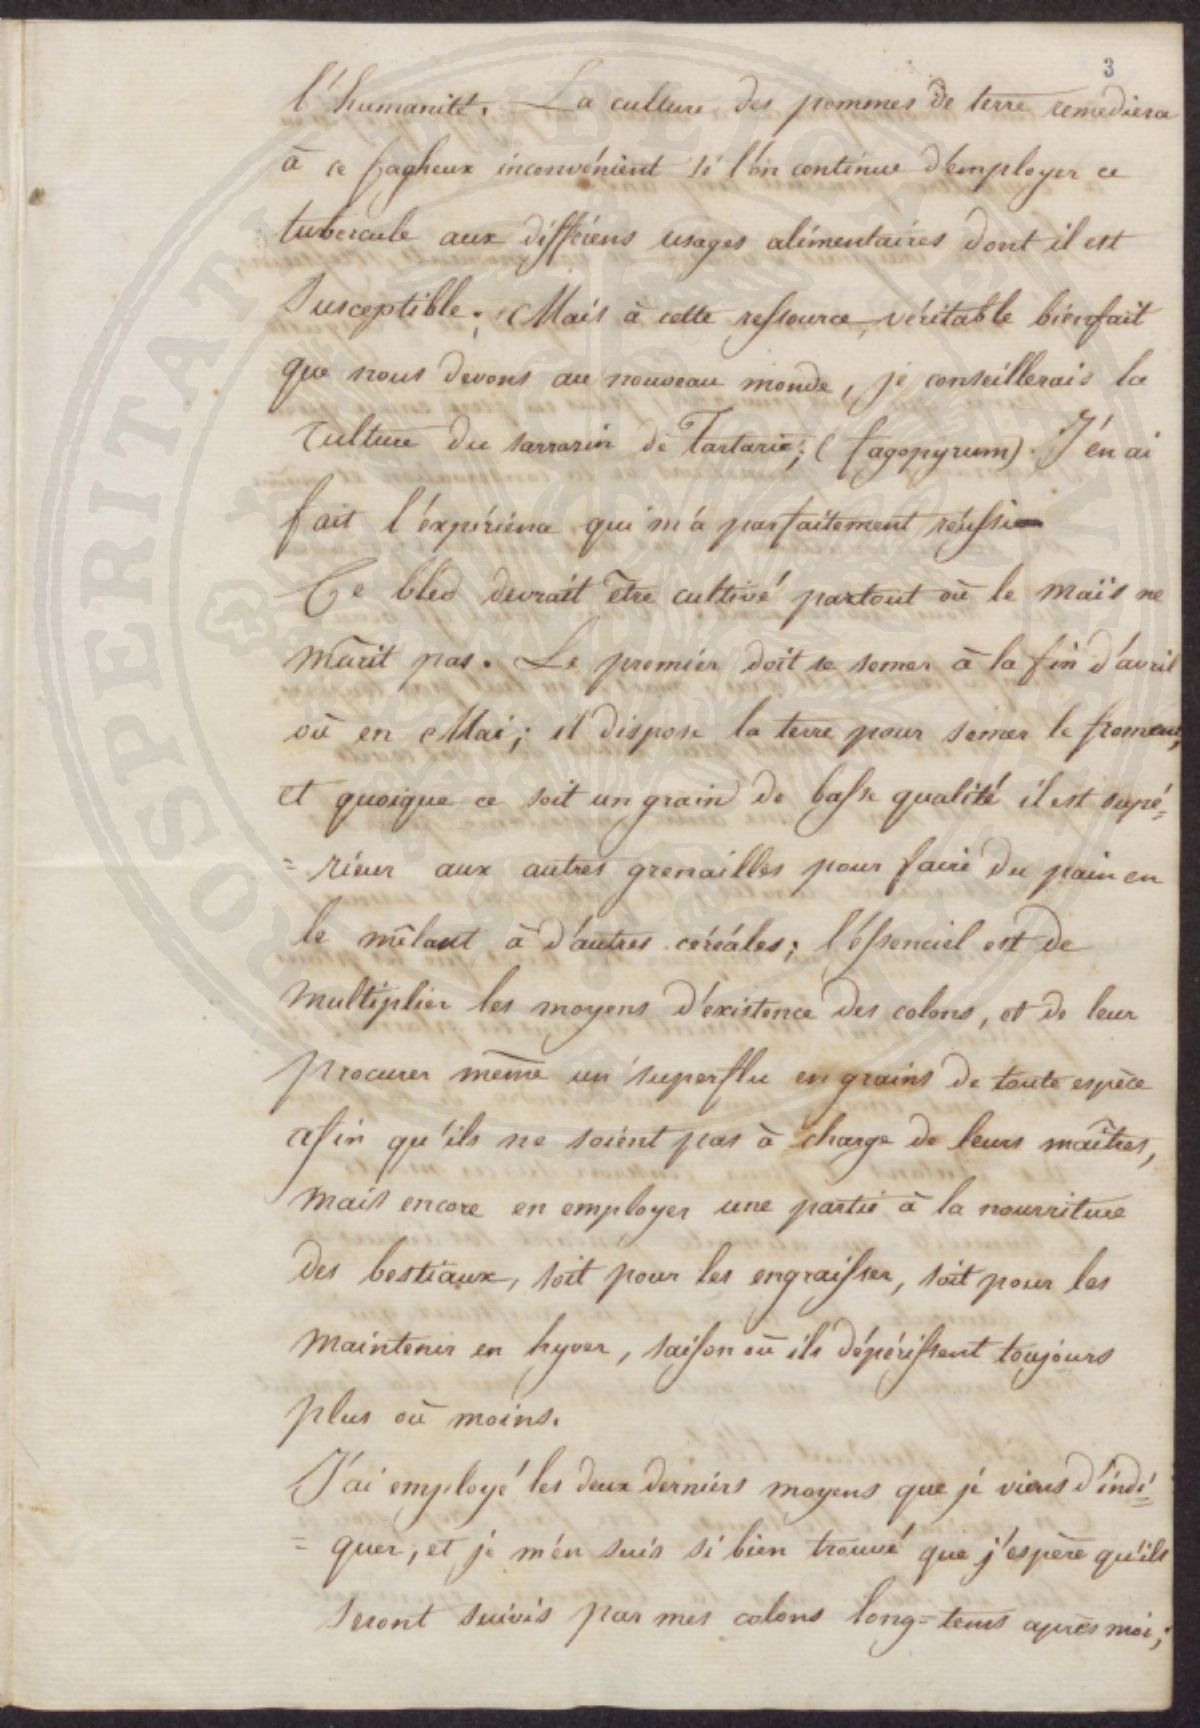 3
l'humanité. La culture des pommes de terre remediera
à ce facheux inconvénient si l'on continue d'employer ce
tubercule aux différens usages alimentaires dont il est
susceptible; Mais à cette ressource, véritable bienfait
que nous devons au nouveau monde, je conseillerais la
culture du sarrasin de Tartarie; (fagopyrum). J'en ai
fait l'expérience qui m'a parfaitement réussi
Ce bled devrait être cultivé partout où le maïs ne
murit pas. Le premier doit se semer à la fin d'avril
où en Mai; il dispose la terre pour semer le froment,
et quoique ce soit un grain de basse qualité il est supé=
=rieur aux autres grenailles pour faire du pain en
le mêlant à d'autres céréales; l'éssenciel est de
multiplier les moyens d'existence des colons, et de leur
procurer même un superflu en grains de toute espèce
afin qu'ils ne soient pas à charge de leurs maîtres,
mais encore en employer une partie à la nourriture
des bestiaux, soit pour les engraisser, soit pour les
maintenir en hyver, saison où ils dépérissent toujours
plus où moins.
J'ai employé les deux derniers moyens que je viens d'indi=
=quer, et je m'en suis si bien trouvé que j'espère qu'ils
seront suivis par mes colons long=tems après moi;
PROSPERITATI PUBLICAE